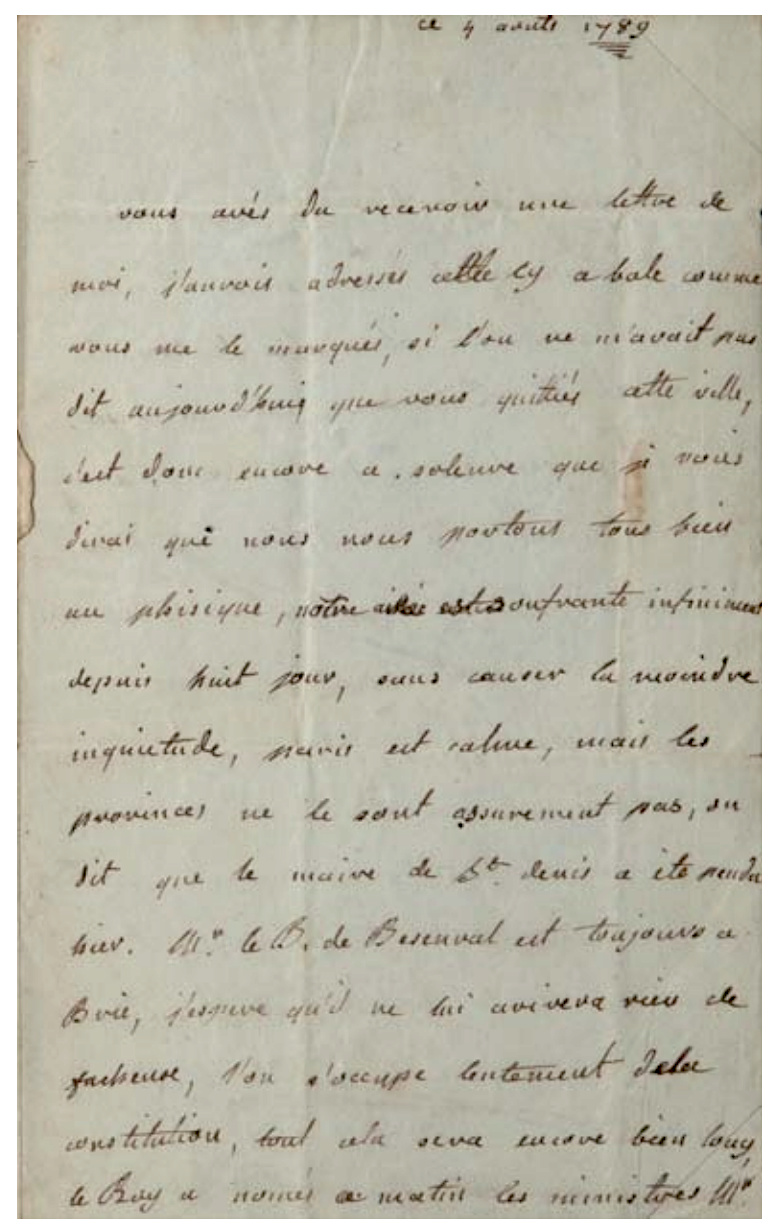 ce 4 aouts 1789
vous avés du recevoir une lettre de
moi, j'aurois adressés cette cy a bale comme
vous me le marqués, si l'on ne m'avait pas
dit aujourd'huy que vous quittiés cette ville,
c'est donc encore a soleure que je vous
dirai que nous nous portons tous bien
au phisique, notre est soufrante infiniment
depuis huit jour, sans causer la moindre
inquietude, paris est calme, mais les
provinces ne le sont assurement pas, on
dit que le maire de St. denis a été pendu
hier. Mr. le B. de Besenval est toujours a
Brie, j'espere qu'il ne lui arivera rien de
facheuse, l'on s'occupe lentement dela
constitution, tout cela sera encore bien long,
le Roy a només ce matin les ministres Mr.